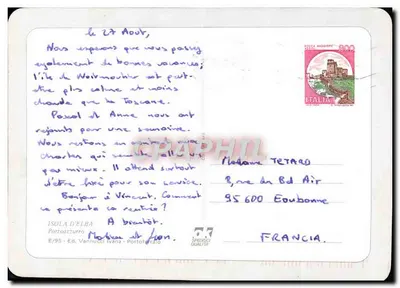 le 27 Août,
Nous espérons que vous passiez
également de bonnes vacances;
l'île de Noirmoutier est peut-
être plus calme et moins
chaude que la Toscane.
Pascal et Anne nous ont
rejoints pour une semaine.
Nous restons en contact avec
Charles qui
pas mieux. Il attend surtout
d'être fixé pour son service.
Bonjour à Vincent. Comment
se présente sa rentrée?
A bientôt.
et
ISOLA D'ELBA
Portoazzurro
Ed. Vannucci Ivana - Portoferraio
ITALIA
Madame TETARD
8, rue du Bel Air
95600 Eaubonne
FRANCIA
CARTHAPHIL